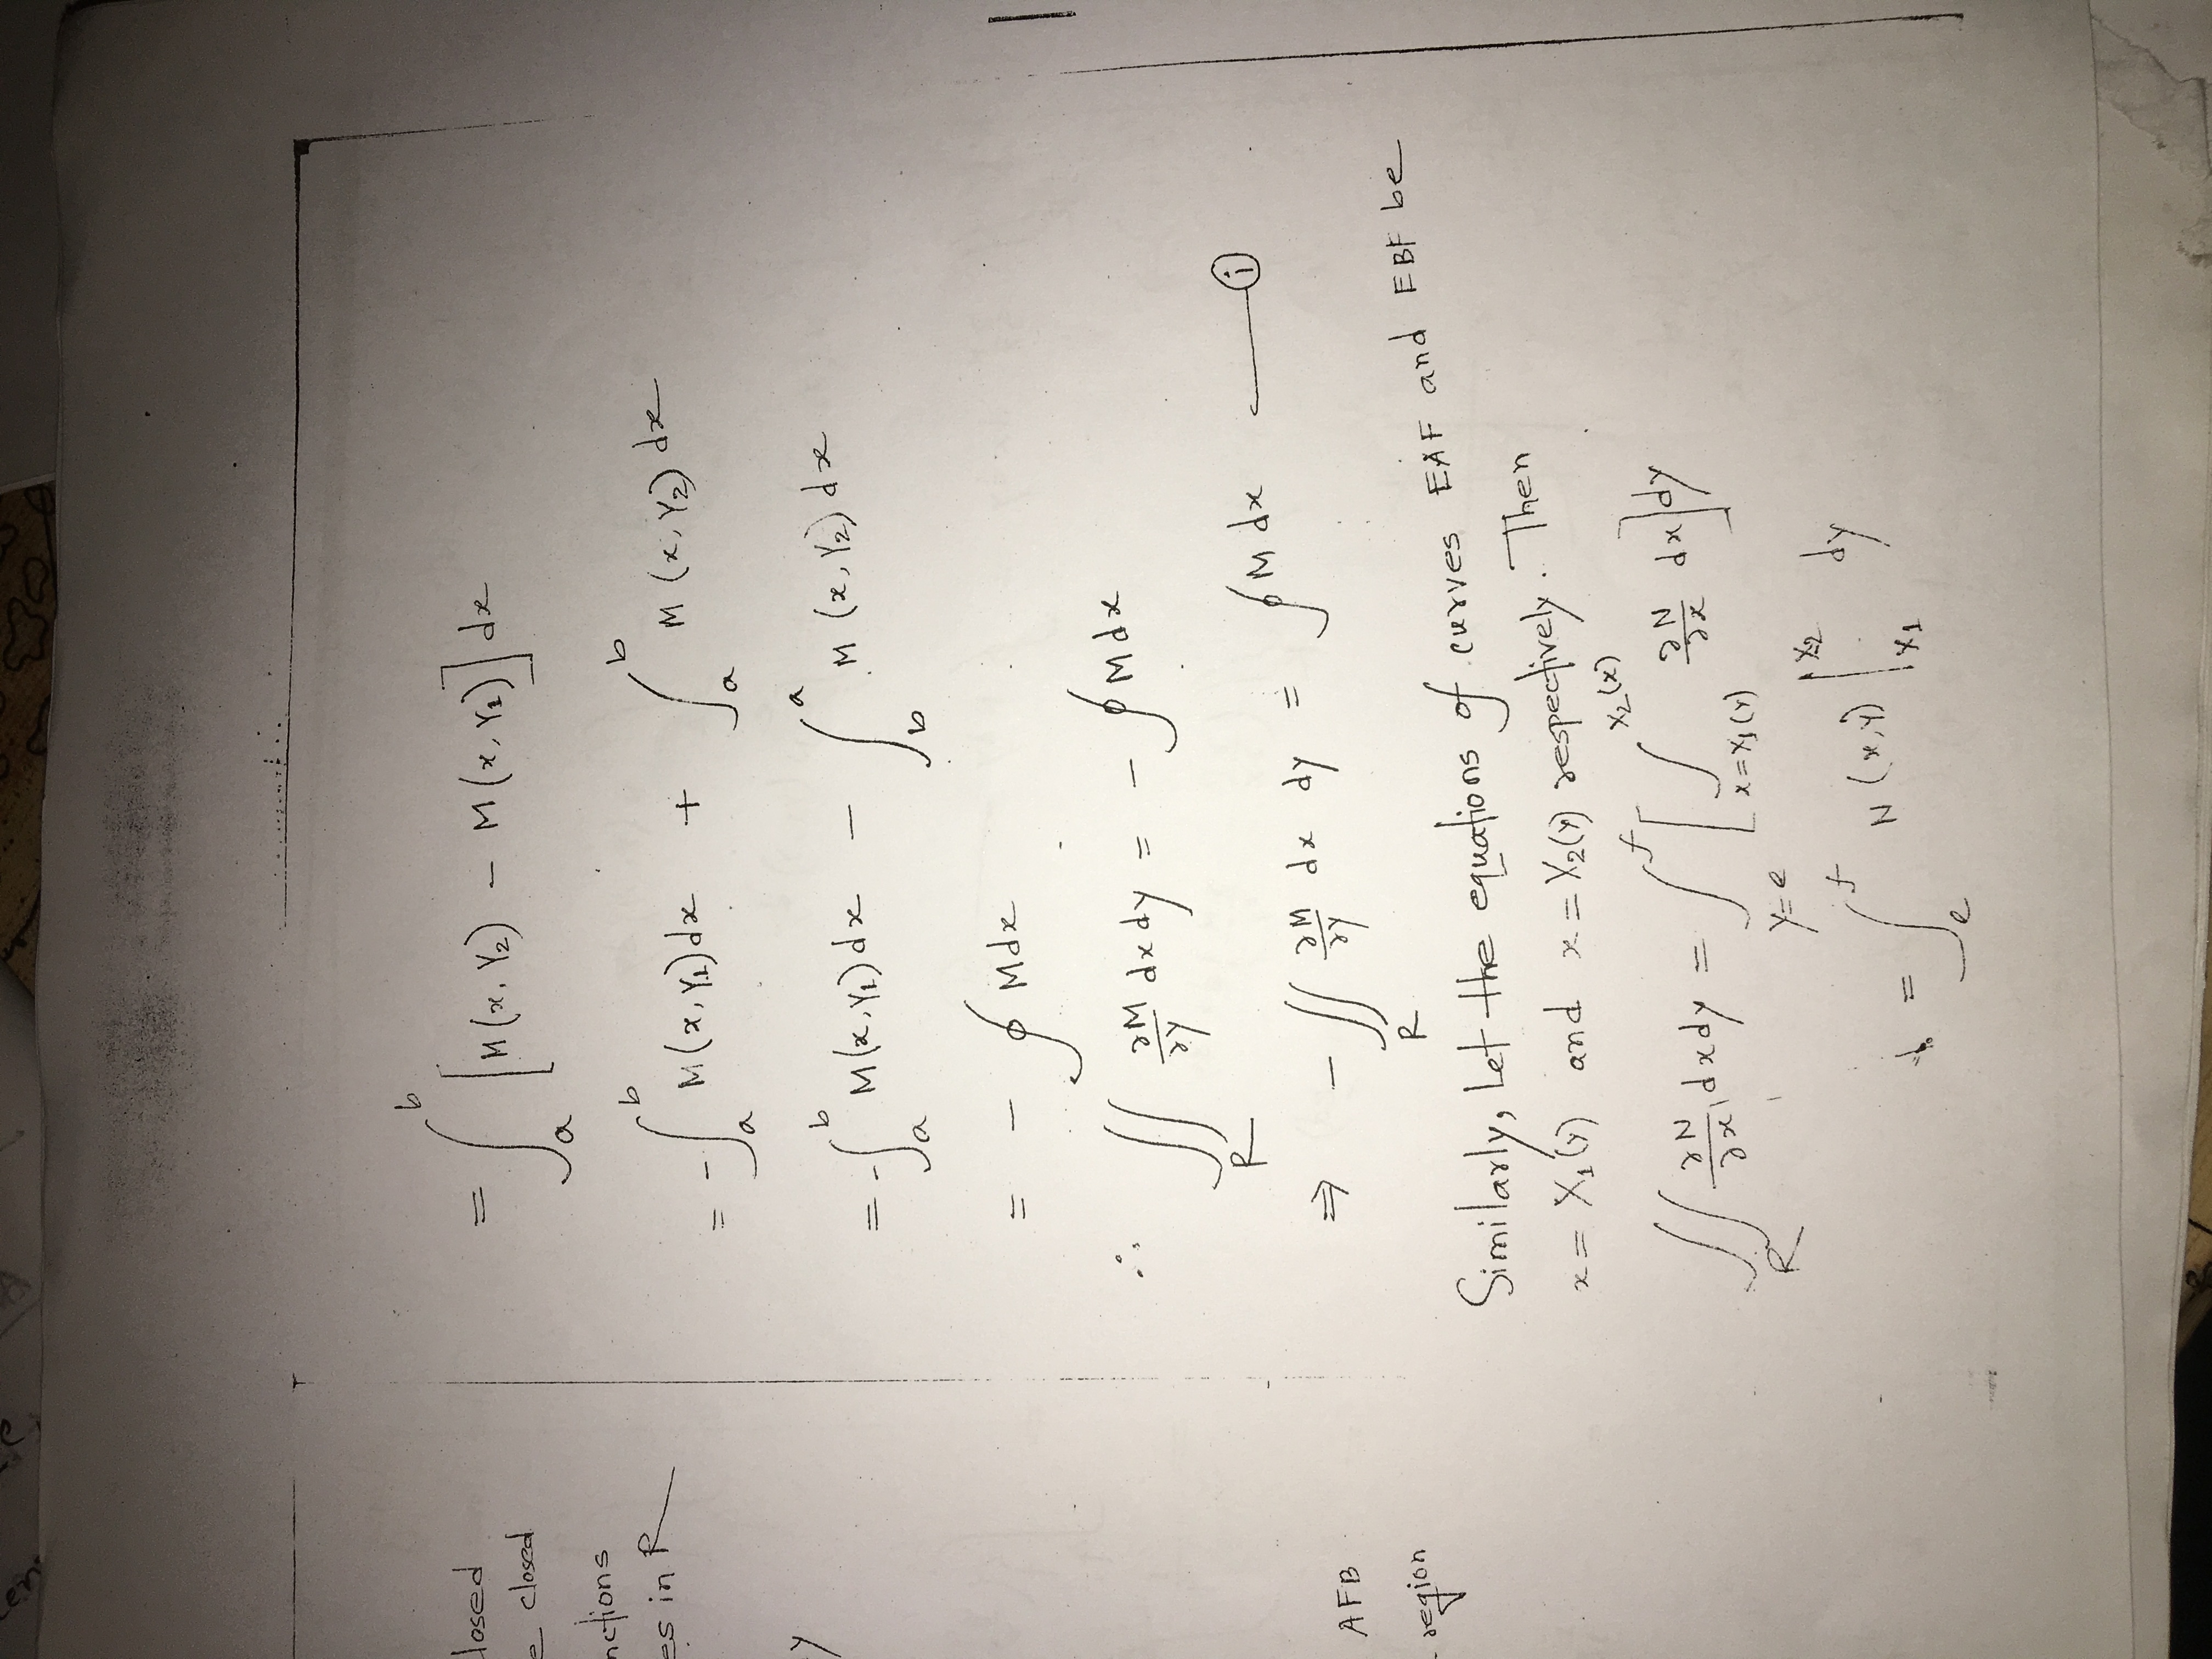 losed
e closed
nctions
es in R
y
AFB
region
= ∫_a^b [M(x, Y₂) - M(x, Y₁)] dx
= -∫_a^b M(x, Y₁) dx + ∫_a^b M(x, Y₂) dx
= -∫_a^b M(x, Y₁) dx - ∫_b^a M(x, Y₂) dx
= - ∮ M dx
∴ ∬_R ∂M/∂y dx dy = - ∮ M dx
⇒ - ∬_R ∂M/∂y dx dy = ∮ M dx — (i)
Similarly, Let the equations of curves EAF and EBF be
x = X₁(y) and x = X₂(y) respectively. Then
∬_R ∂N/∂x dx dy = ∫_{y=e}^f [∫_{x=X₁(y)}^{X₂(x)} ∂N/∂x dx] dy
= ∫_e^f N(x,y) |_{X₁}^{X₂} dy